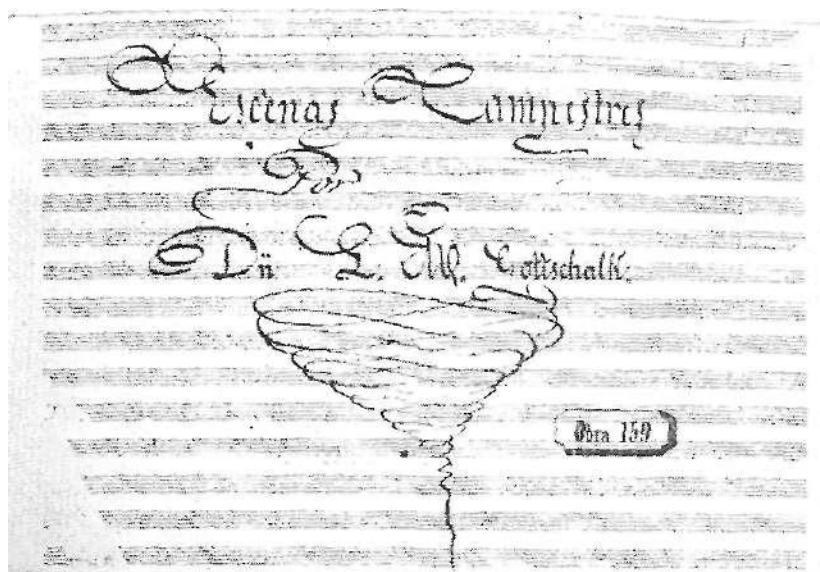 Escenas Campestres
Por
Dn L. M. Gottschalk.
Obra 159